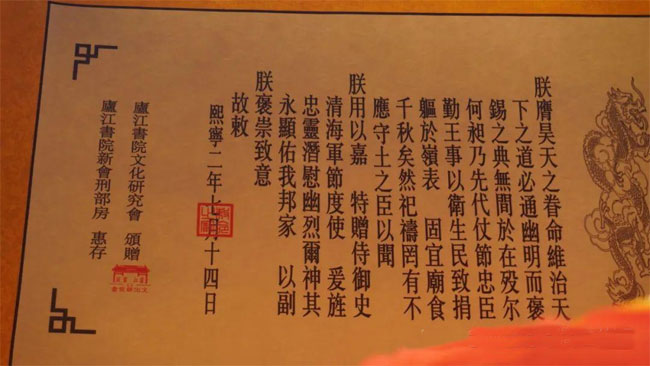 朕膺昊天之眷命維治天
下之道必通幽明而褒
錫之典無間於在殁尔
何昶乃先代仗節忠臣
勤王事以衛生民致捐
軀於嶺表 固宜廟食
千秋矣然祀禱罔有不
應守土之臣以聞
朕用以嘉 特贈侍御史
清海軍節度使 爰旌
忠靈潛慰幽烈爾神其
永顯佑我邦家 以副
朕褒崇致意
故敕
熙寧二年七月十四日
廬江書院文化研究會 頒贈
廬江書院新會刑部房 惠存